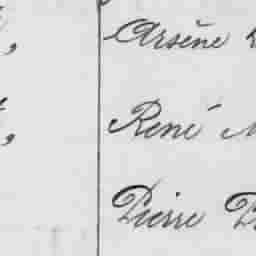 Arsène
René
Pierre